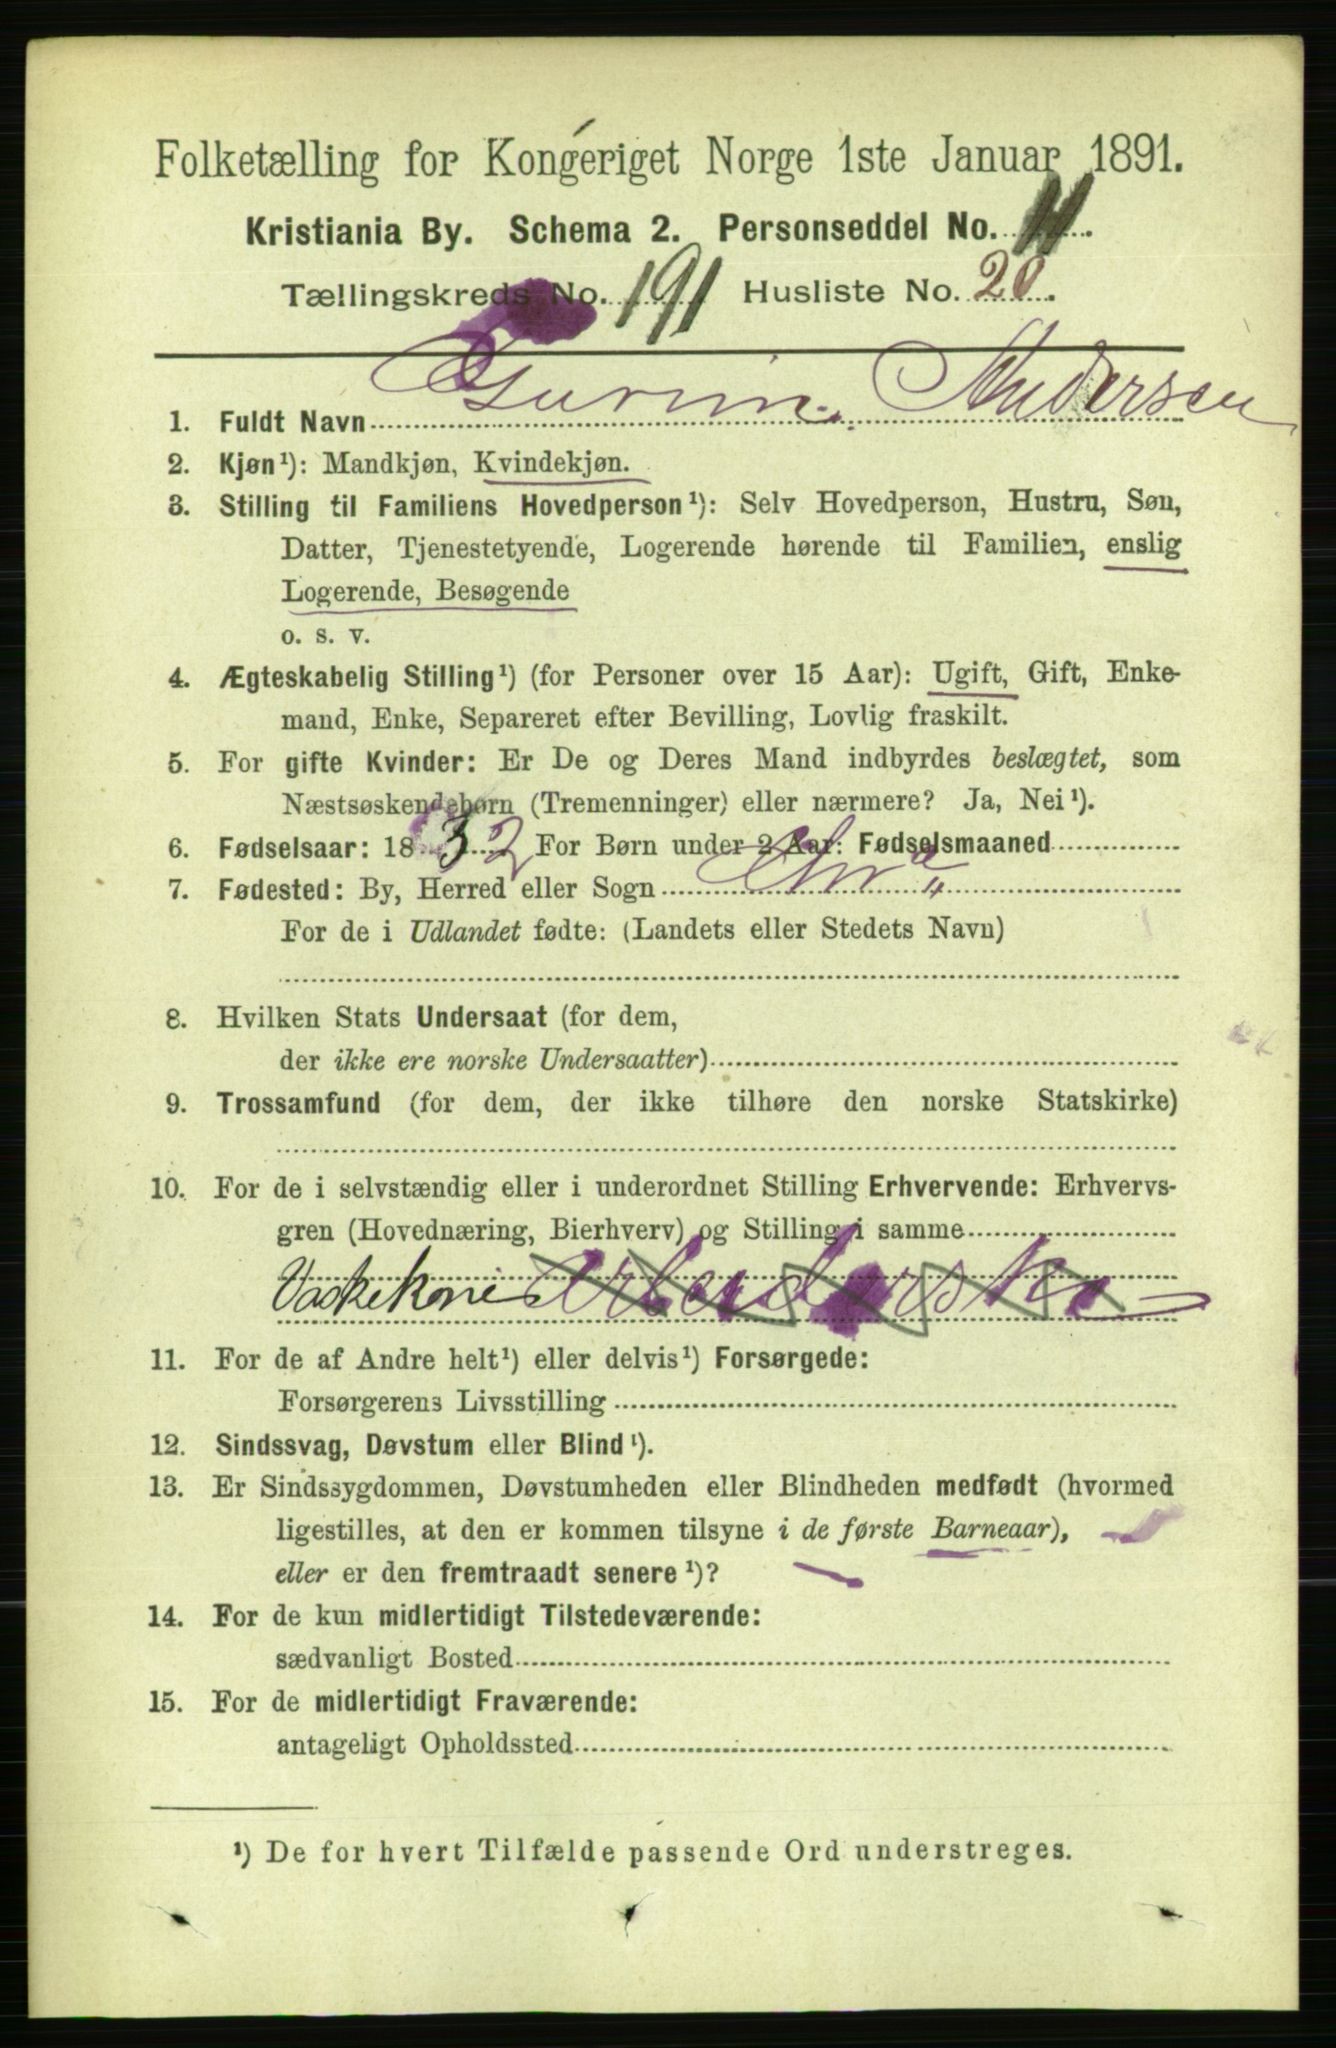 Folketælling for Kongeriget Norge 1ste Januar 1891.
Kristiania By. Schema 2. Personseddel No. 11.
Tællingskreds No. 191 Husliste No. 20.
1. Fuldt Navn Gurine Andersen
2. Kjøn¹): Mandkjøn, Kvindekjøn.
3. Stilling til Familiens Hovedperson¹): Selv Hovedperson, Hustru, Søn,
Datter, Tjenestetyende, Logerende hørende til Familien, enslig
Logerende, Besøgende
o. s. v.
4. Ægteskabelig Stilling¹) (for Personer over 15 Aar): Ugift, Gift, Enke-
mand, Enke, Separeret efter Bevilling, Lovlig fraskilt.
5. For gifte Kvinder: Er De og Deres Mand indbyrdes beslægtet, som
Næstsøskendebørn (Tremenninger) eller nærmere? Ja, Nei¹).
6. Fødselsaar: 1832 For Børn under 2 Aar: Fødselsmaaned
7. Fødested: By, Herred eller Sogn Chr a
For de i Udlandet fødte: (Landets eller Stedets Navn)
8. Hvilken Stats Undersaat (for dem,
der ikke ere norske Undersaatter)
9. Trossamfund (for dem, der ikke tilhøre den norske Statskirke)
10. For de i selvstændig eller i underordnet Stilling Erhvervende: Erhvervs-
gren (Hovednæring, Bierhverv) og Stilling i samme
Vaskekone Arbeiderske
11. For de af Andre helt¹) eller delvis¹) Forsørgede:
Forsørgerens Livsstilling
12. Sindssvag, Døvstum eller Blind¹).
13. Er Sindssygdommen, Døvstumheden eller Blindheden medfødt (hvormed
ligestilles, at den er kommen tilsyne i de første Barneaar),
eller er den fremtraadt senere¹)?
14. For de kun midlertidigt Tilstedeværende:
sædvanligt Bosted
15. For de midlertidigt Fraværende:
antageligt Opholdssted
¹) De for hvert Tilfælde passende Ord understreges.